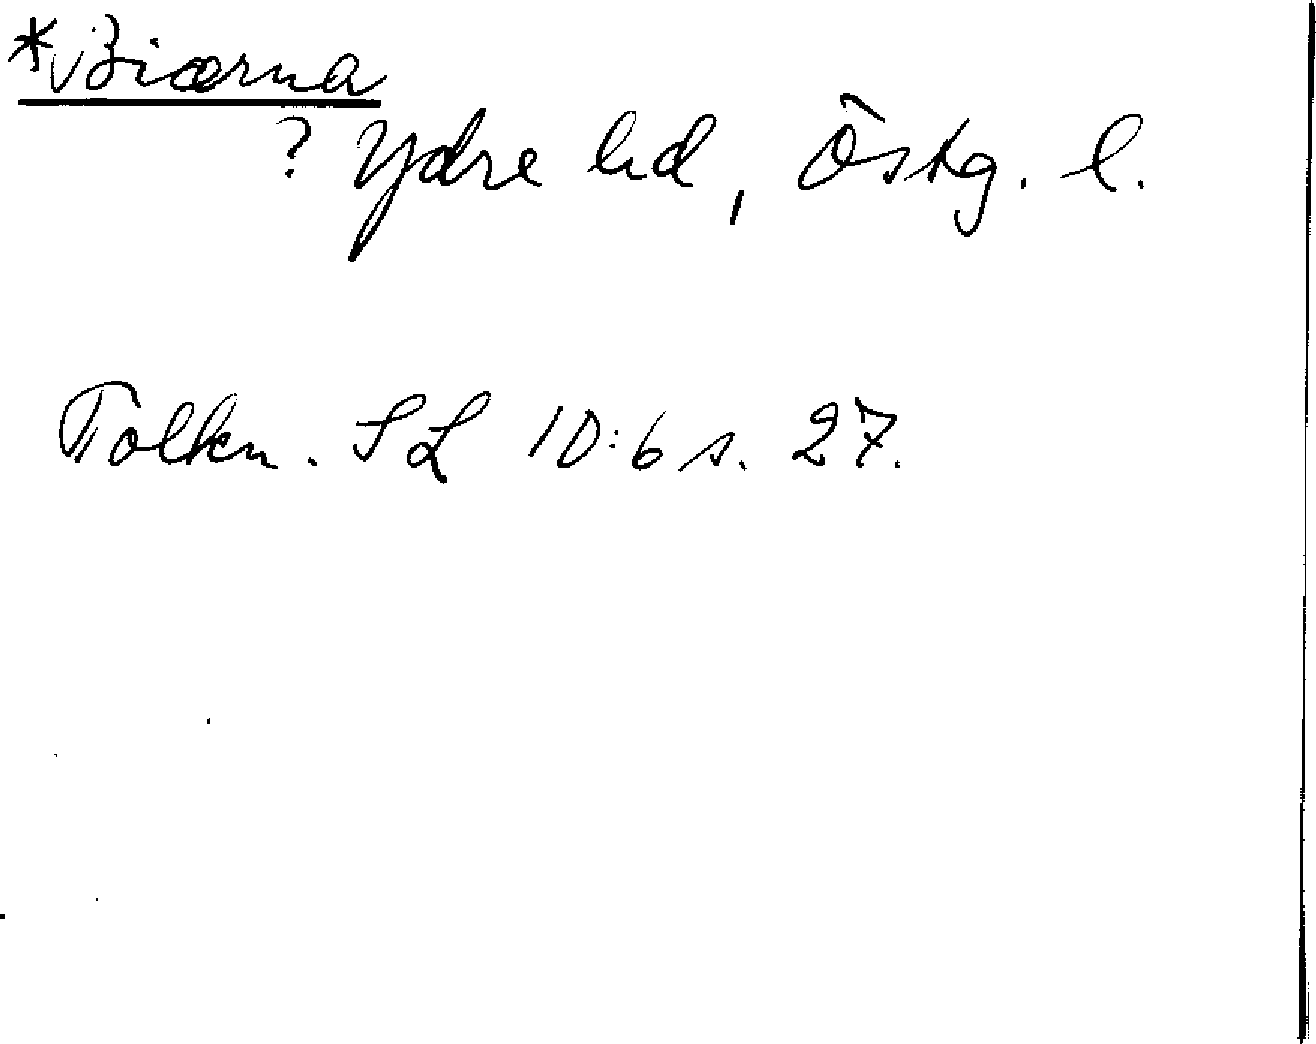 *Biærna
? Ydre hd, Östg. l.
Tolkn. SL 10:6 s. 27.